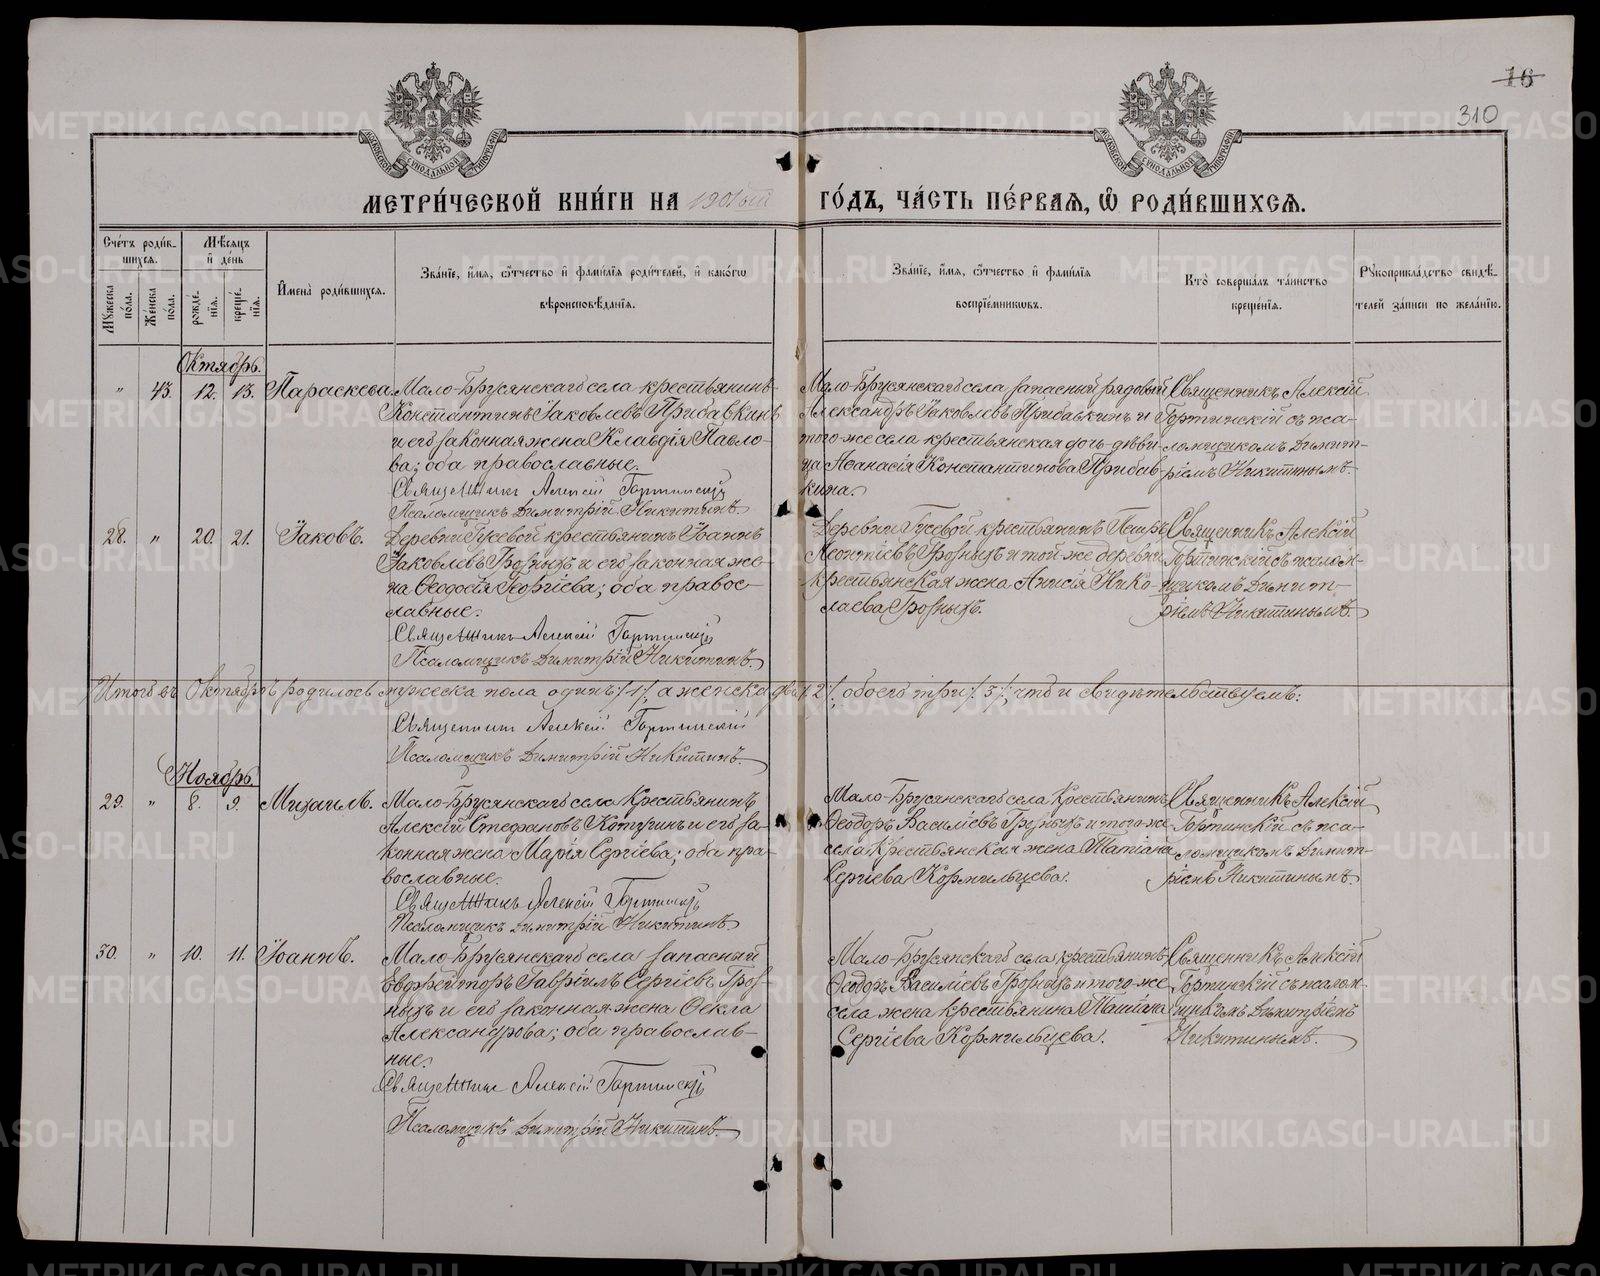 16
310
МОСКОВСКОЙ СѴНОДАЛЬНОЙ ТИПОГРАФІИ
МОСКОВСКОЙ СѴНОДАЛЬНОЙ ТИПОГРАФІИ
МЕТРИ́ЧЕСКОЙ КНИ́ГИ НА 1901ый ГО́ДЪ, ЧА́СТЬ ПЕ́РВАЯ, Ѡ РОДИ́ВШИХСЯ.
Сче́тъ роди́в-
шихся.
Мѣ́сяцъ
и҆ де́нь
Мꙋ́жеска по́ла.
Же́нска по́ла.
рожде́-
нїя.
креще́-
нїя.
И҆мена̀ роди́вшихся.
Зва́нїе, и҆́мя, ѻ҆́тчество и҆ фами́лїя роди́телей, и҆ како́гѡ
вѣроисповѣ́данїя.
Зва́нїе, и҆́мя, ѻ҆́тчество и҆ фами́лїя
воспрїе́мникѡвъ.
Кто̀ соверша́лъ та́инство
креще́нїя.
Рꙋкоприкла́дство свидѣ́-
телей за́писи по жела́нїю.
Октябрь.
" 43. 12. 13. Параскева. Мало-Брусянскаго села крестьянинъ
Константинъ Іаковлевъ Прибавкинъ
и его законная жена Клавдія Павло-
ва; оба православные.
Священникъ Алексій Гортинскій
Псаломщикъ Димитрій Никитинъ.
Мало-Брусянскаго села запасный рядовый
Александръ Іаковлевъ Прибавкинъ и
того-же села крестьянская дочь-дѣви-
ца Аѳанасія Константинова Прибав-
кина.
Священникъ Алексій
Гортинскій съ пса-
ломщикомъ Димит-
ріемъ Никитинымъ.
28. " 20. 21. Іаковъ. Деревни Гусевой крестьянинъ Іоаннъ
Іаковлевъ Грозныхъ и его законная же-
на Ѳеодосія Георгіева; оба правос-
лавные.
Священникъ Алексій Гортинскій
Псаломщикъ Димитрій Никитинъ.
Деревни Гусевой крестьянинъ Петръ
Леонтіевъ Грозныхъ и той же деревни
крестьянская жена Анисія Нико-
лаева Грозныхъ.
Священникъ Алексій
Гортинскій съ псалом-
щикомъ Димит-
ріемъ Никитинымъ.
Итого въ Октябрѣ родилось мужеска пола одинъ /1/, а женска двѣ /2/, обоего три /3/, что и свидѣтельствуемъ:
Священникъ Алексій Гортинскій
Псаломщикъ Димитрій Никитинъ.
Ноябрь.
29. " 8. 9. Михаилъ. Мало-Брусянскаго села Крестьянинъ
Алексій Стефановъ Котугинъ и его за-
конная жена Марія Сергіева; оба пра-
вославные.
Священникъ Алексій Гортинскій
Псаломщикъ Димитрій Никитинъ.
Мало-Брусянскаго села Крестьянинъ
Ѳеодоръ Василіевъ Грозныхъ и того-же
села Крестьянская жена Татіана
Сергіева Кормильцева.
Священникъ Алексій
Гортинскій съ пса-
ломщикомъ Димит-
ріемъ Никитинымъ.
30. " 10. 11. Іоаннъ. Мало-Брусянскаго села запасный
Ефрейторъ Гавріилъ Сергіевъ Гроз-
ныхъ и его законная жена Ѳекла
Александрова; оба православ-
ные.
Священникъ Алексій Гортинскій
Псаломщикъ Димитрій Никитинъ.
Мало-Брусянскаго села крестьянинъ
Ѳеодоръ Василіевъ Грозныхъ и того-же
села жена крестьянина Татіана
Сергіева Кормильцева.
Священникъ Алексій
Гортинскій съ псалом-
щикомъ Димитріемъ
Никитинымъ.
METRIKI.GASO-URAL.RU